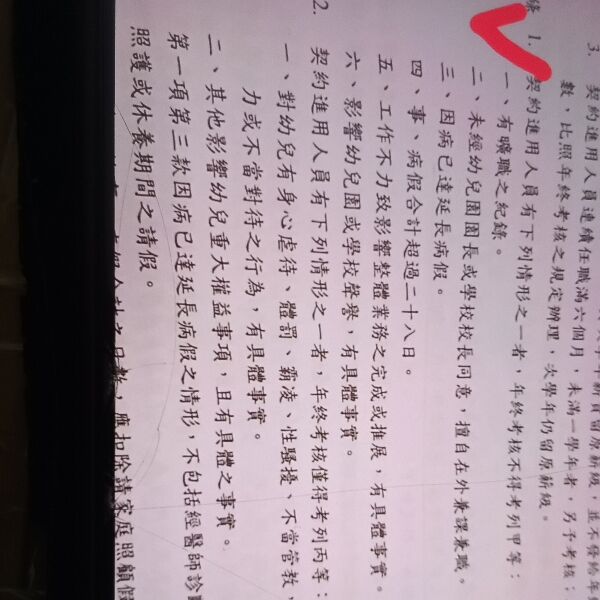 學年薪資留原薪級，並不發給年
3. 契約進用人員連續任職滿六個月，未滿一學年者，另予考核；
數，比照年終考核之規定辦理，次學年仍留原薪級。
條 1. 契約進用人員有下列情形之一者，年終考核不得考列甲等：
一、有曠職之紀錄。
二、未經幼兒園園長或學校校長同意，擅自在外兼課兼職。
三、因病已達延長病假。
四、事、病假合計超過二十八日。
五、工作不力致影響整體業務之完成或推展，有具體事實。
六、影響幼兒園或學校聲譽，有具體事實。
2. 契約進用人員有下列情形之一者，年終考核僅得考列丙等：
一、對幼兒有身心虐待、體罰、霸凌、性騷擾、不當管教，
力或不當對待之行為，有具體事實。
二、其他影響幼兒重大權益事項，且有具體之事實。
第一項第三款因病已達延長病假之情形，不包括經醫師診
照護或休養期間之請假。
病假合計之日數，應扣除請家庭照顧假